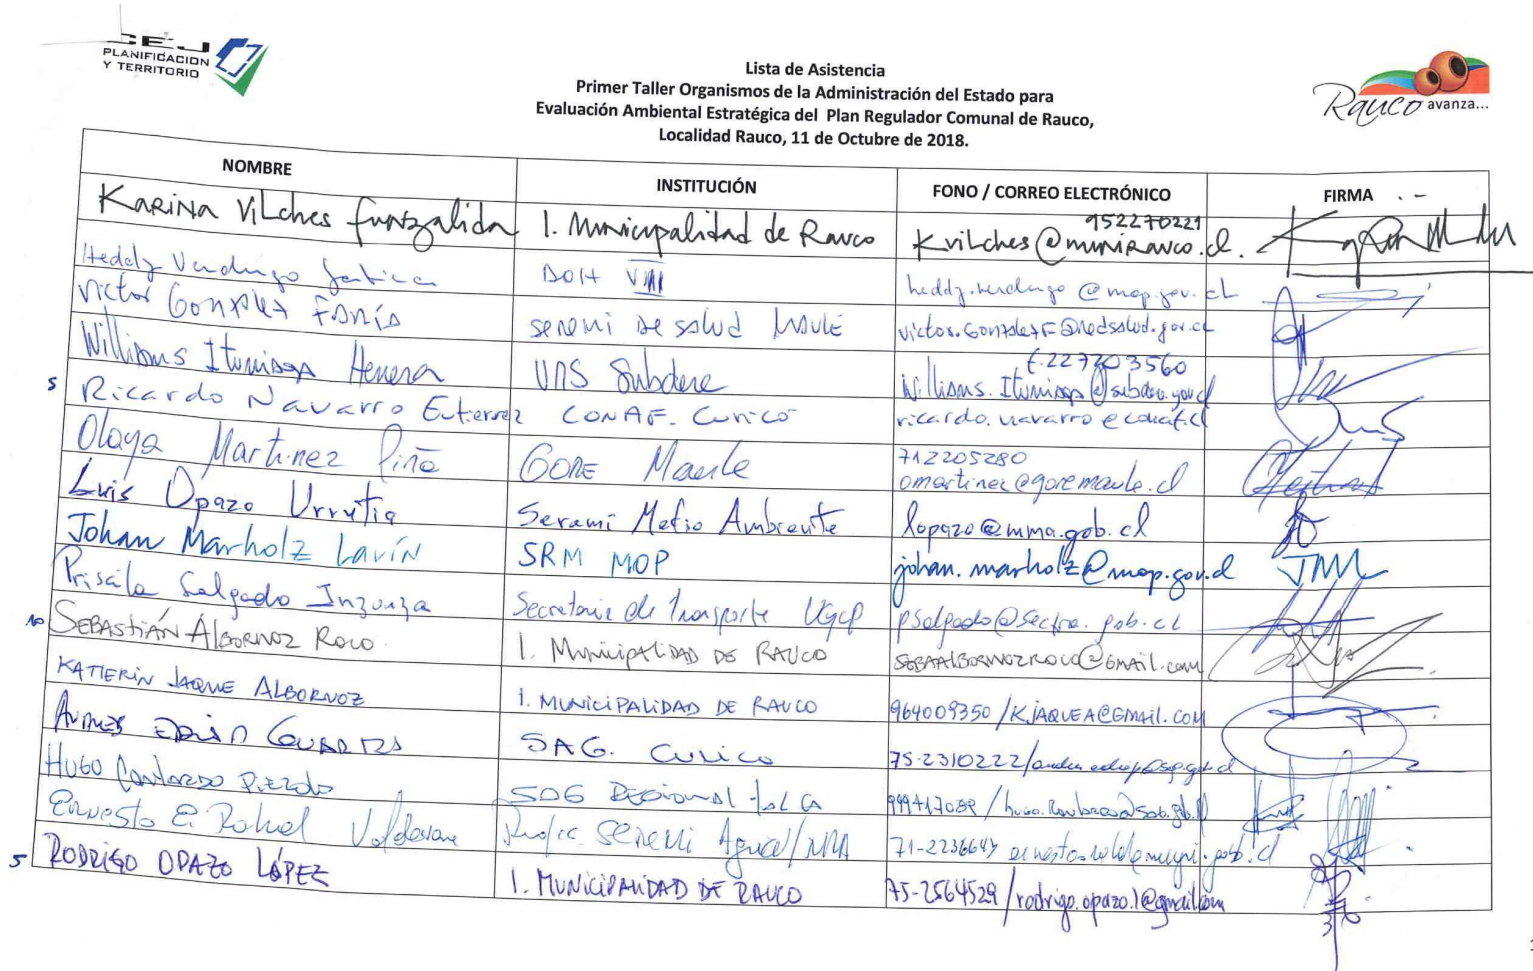 CEJ
PLANIFICACION
Y TERRITORIO
Lista de Asistencia
Primer Taller Organismos de la Administración del Estado para
Evaluación Ambiental Estratégica del Plan Regulador Comunal de Rauco,
Localidad Rauco, 11 de Octubre de 2018.
Rauco avanza...
NOMBRE INSTITUCIÓN FONO / CORREO ELECTRÓNICO FIRMA
KARINA Vilches Funzalida I. Municipalidad de Rauco 952270221
kvilches@munirauco.cl.
Heddy Verdugo DOH VII heddy.verdugo@mop.gov.cl
Victor Gonzalez FARÍA Seremi de salud Maule victor.gonzalezF@redsalud.gov.cl
Williams Itumiaga Herrera URS Subdere f. 227203560
Williams.Itumiaga@subdere.gov.cl
5 Ricardo Navarro Gutierrez CONAF. Curicó ricardo.navarro@conaf.cl
Olaya Martinez Piña GORE Maule 712205280
omartinez@goremaule.cl
Luis Opazo Urrutia Seremi Medio Ambiente lopazo@mma.gob.cl
Johan Marholz Lavín SRM MOP johan.marholz@mop.gov.cl JML
Priscila Salgado Inzunza Secretaria de Transporte UGCP psalgado@sectra.gob.cl
10 SEBASTIÁN ÁLBORNOZ ROCO. I. MUNICIPALIDAD DE RAUCO SEBAALBORNOZROCO@GMAIL.COM
KATIERIN JAQUE ALBORNOZ I. MUNICIPALIDAD DE RAUCO 964009350/KJAQUEA@GMAIL.COM
SAG. Curico 75-2310222/
HUGO SAG REGIONAL TALCA
Ernesto E. Rahal Seremi 71-2236647
5 RODRIGO OPAZO LÓPEZ I. MUNICIPALIDAD DE RAUCO 75-2564529/rodrigo.opazo.l@gmail.com
1